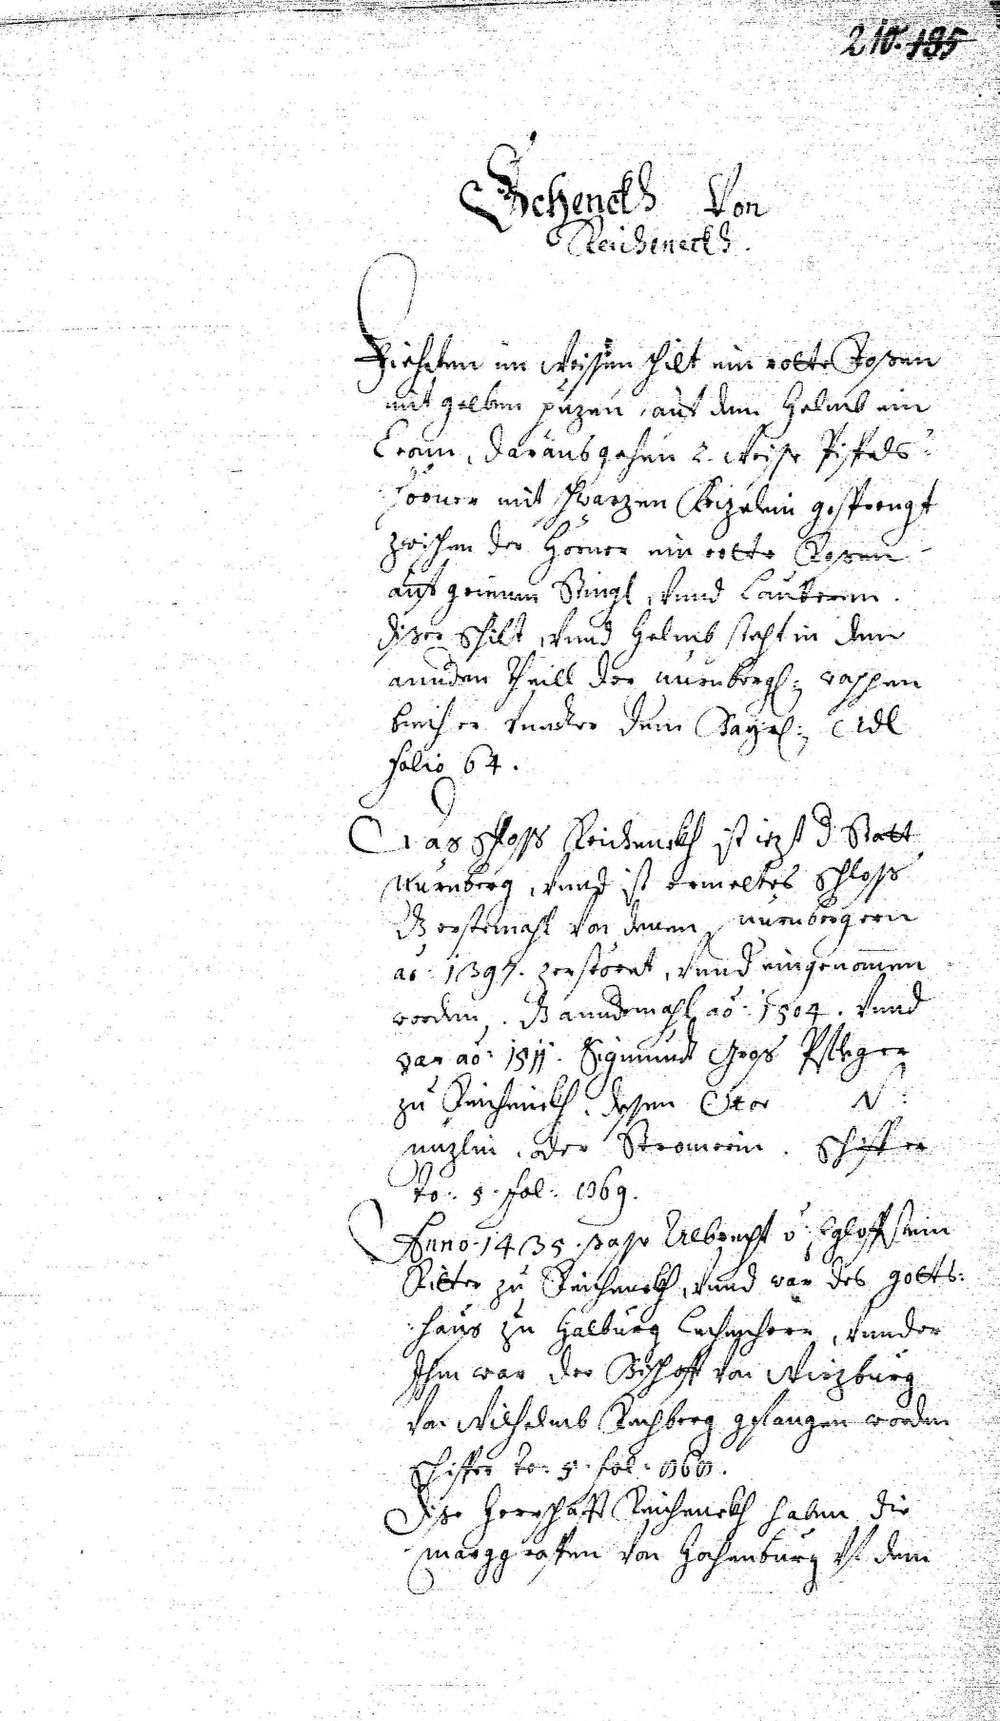 210. 195
Schenckh Von
Reicheneckh.
Fiehrten im Weissen schilt ein rotte Rosen
mit gelben puzen, auf dem Helmb ein
Cron, daraus gehen 2. Weisse Piffels:
hörner mit schwarzen Creizlein gesprengt
zwischen der Hörner ein rotte Rosen
auf grienen Stingl, vnnd Laubern.
diser Schilt, vnnd Helmb steht in dem
anndern Theill der nürnberg: wappen
biecher vnnder dem Bayrl: Adl
folio 64.
Das Schloss Reicheneckh ist iezt d Statt
Nürnberg, vnnd ist ermeltes Schloss
erstemahl von denen nürnbergern
ao: 1397. zerstöret, vnnd eingenommen
worden. anndermahl ao: 1504. vnnd
war ao: 1511. Sigmundt Gross Pfleger
zu Reicheneckh, dessen N:
nüzlin, oder Stromerin. Schiffer
to: 5. fol: 1369.
Anno 1435. sasse Albrecht v: Egloffstein
Ritter zu Reicheneckh, vnnd war des gotts:
haus zu Halburg Lechenherr, vnnder
Ihm war der Bischoff von Wirzburg
von Wilhelmb Rechberg gefangen worden
Schiffer to: 5. fol:
Dise Herrschafft Reicheneckh haben die
marggraffen von Hohenburg vf dem